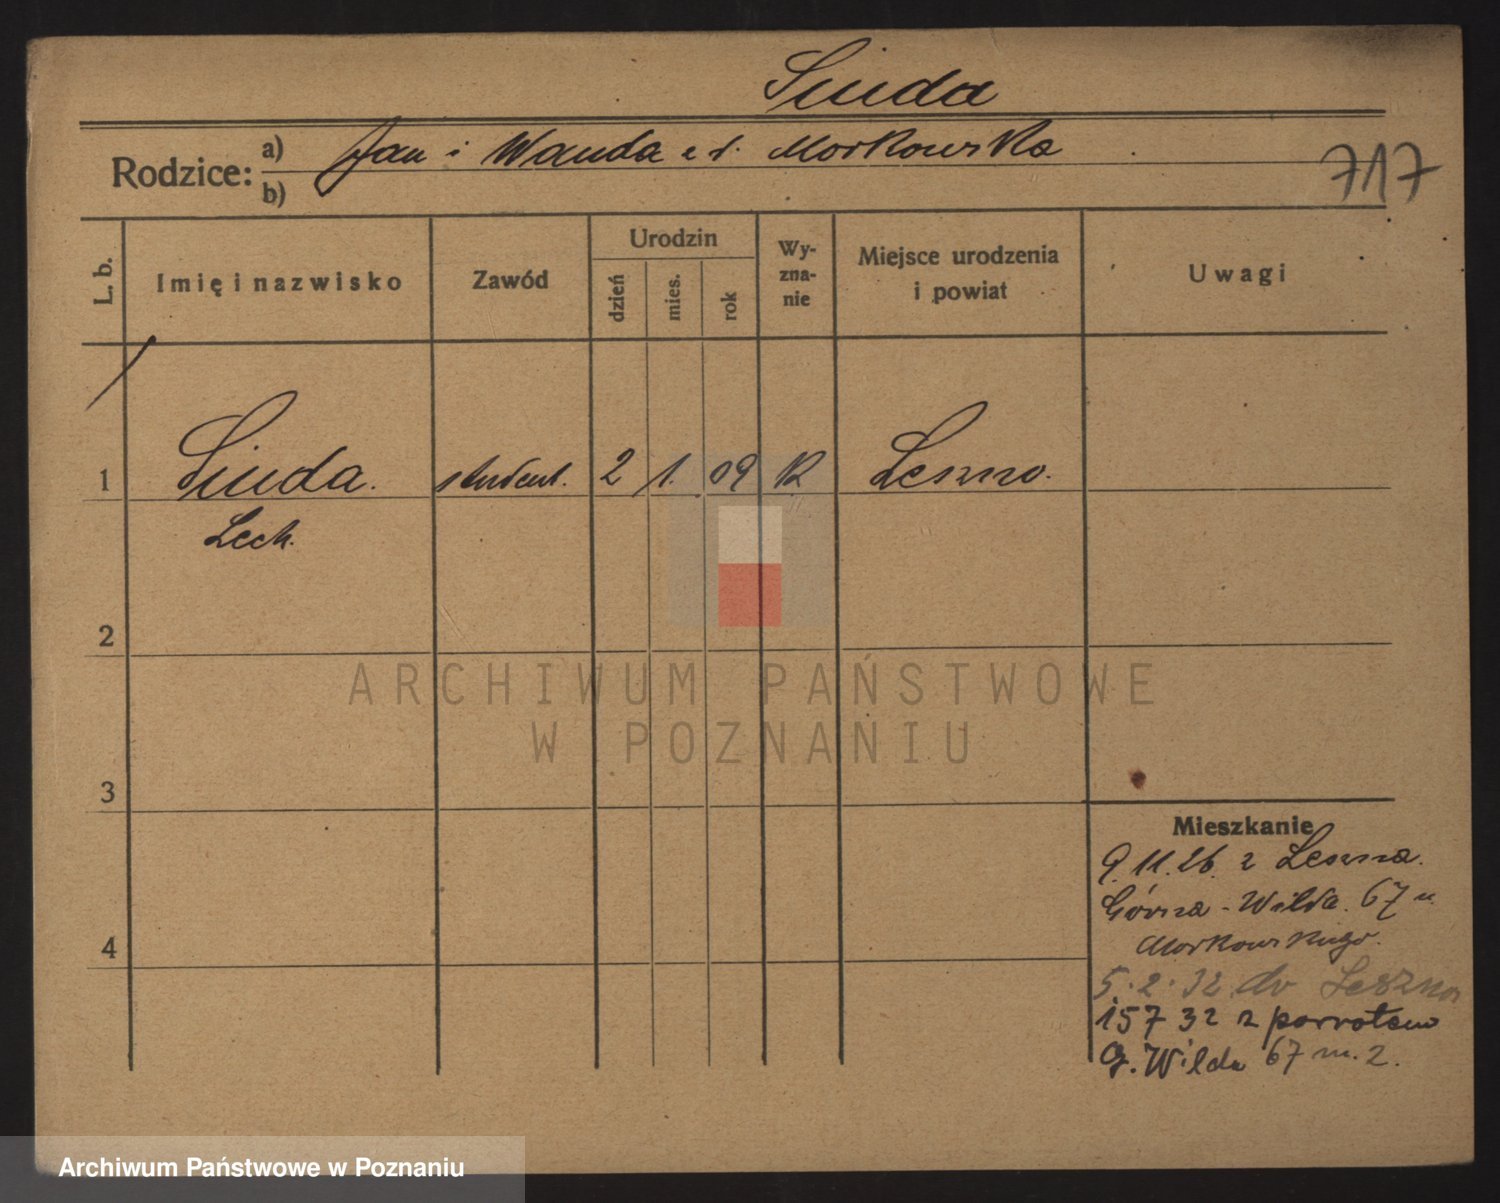 Sinda
Rodzice: a) Jan i Wanda z d. Morkowska
b)
717
L. b. Imię i nazwisko Zawód Urodzin dzień mies. rok Wy-zna-nie Miejsce urodzenia i powiat Uwagi
1 Sinda. student. 2 1. 09 K Leszno.
Lech.
2
3
4
Mieszkanie
9.11.26. z Leszna.
Górna-Wilda. 67 u
Morkowskiego.
5.2.32 do Leszna
15 7 32 z powrotem
G. Wilda 67 m. 2.
ARCHIWUM PAŃSTWOWE
W POZNANIU
Archiwum Państwowe w Poznaniu